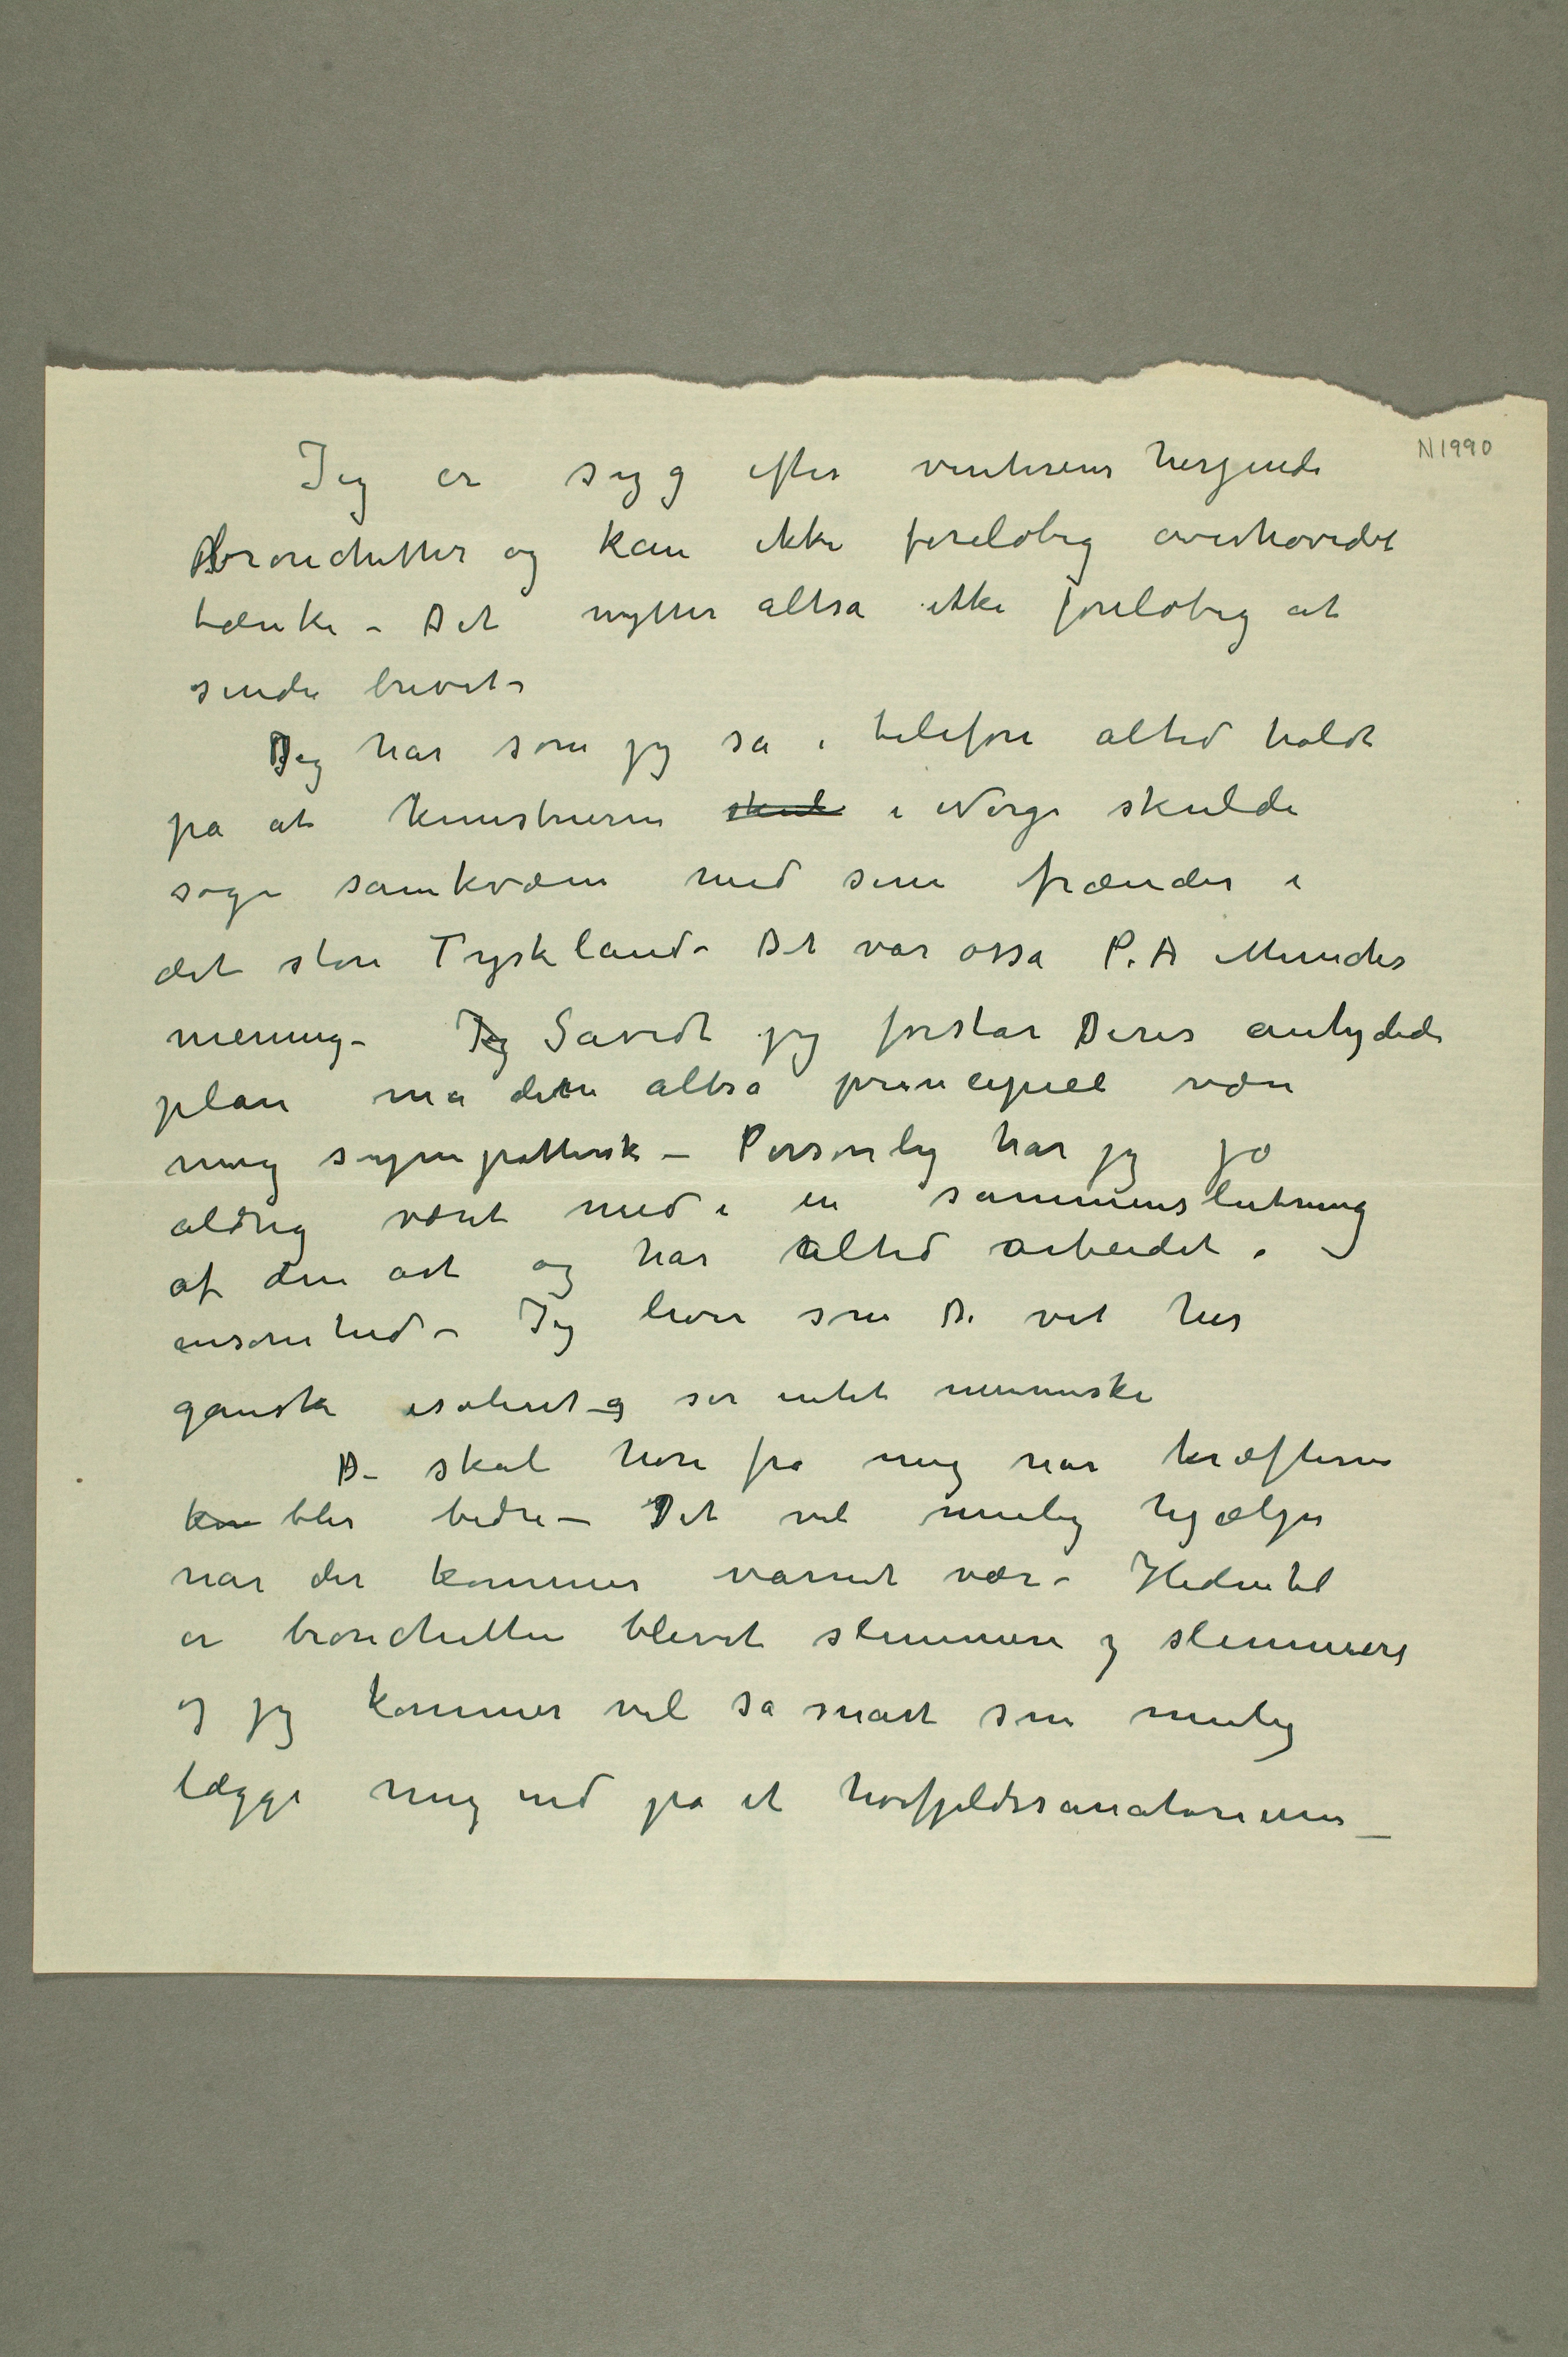 N 1990
Jeg er syg efter vinterens herjende
bronchitter og kan ikke foreløbig overhovedet
tænke – Det nytter altså ikke foreløbig at
sende brevet –
Jeg har som jeg sa i telefon altid holdt
på at kunstnerne skul i Norge skulde
søge samkvæm med sine frænder i
det store Tyskland – Det var osså P. A Munchs
mening – Jeg Såvidt jeg forstår Deres antydede
plan må den altså principiel være
mig sympattisk – Personlig har jeg jo
aldrig været med i en sammenslutning
af den art og har altid arbeidet i
ensomhed – Jeg lever som De vet her
ganske isoleret og ser intet menneske
De skal høre fra mig når kræfterne
kom blir bedre – Det vil mulig hjælpe
når der kommer varmet vær – Hidentil
er bronchitten blevet slemmere og slemmere
og jeg kommer vel så snart som mulig
lægge mig ind på et høifjeldssanatorium –